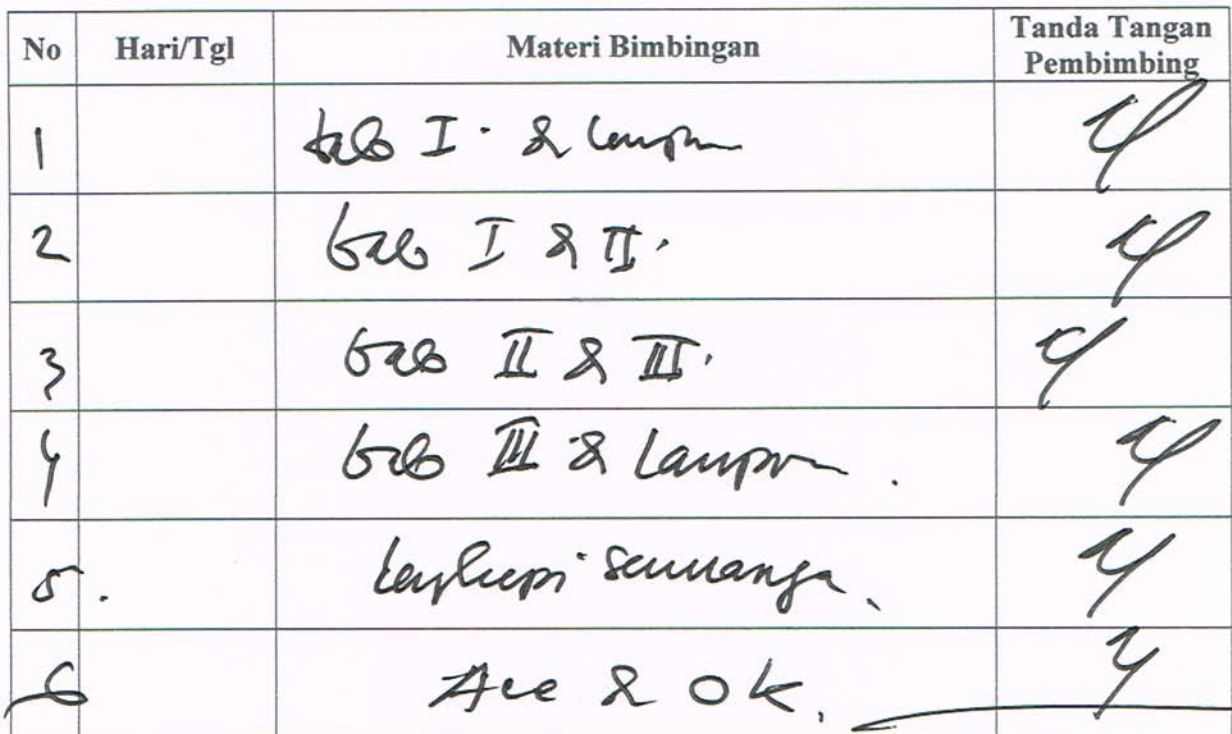 No Hari/Tgl Materi Bimbingan Tanda Tangan Pembimbing
1 bab I. &
2 bab I & II.
3 bab II & III.
4 bab III & Lampiran.
5. Lengkapi semuanya.
6 Acc & Ok.